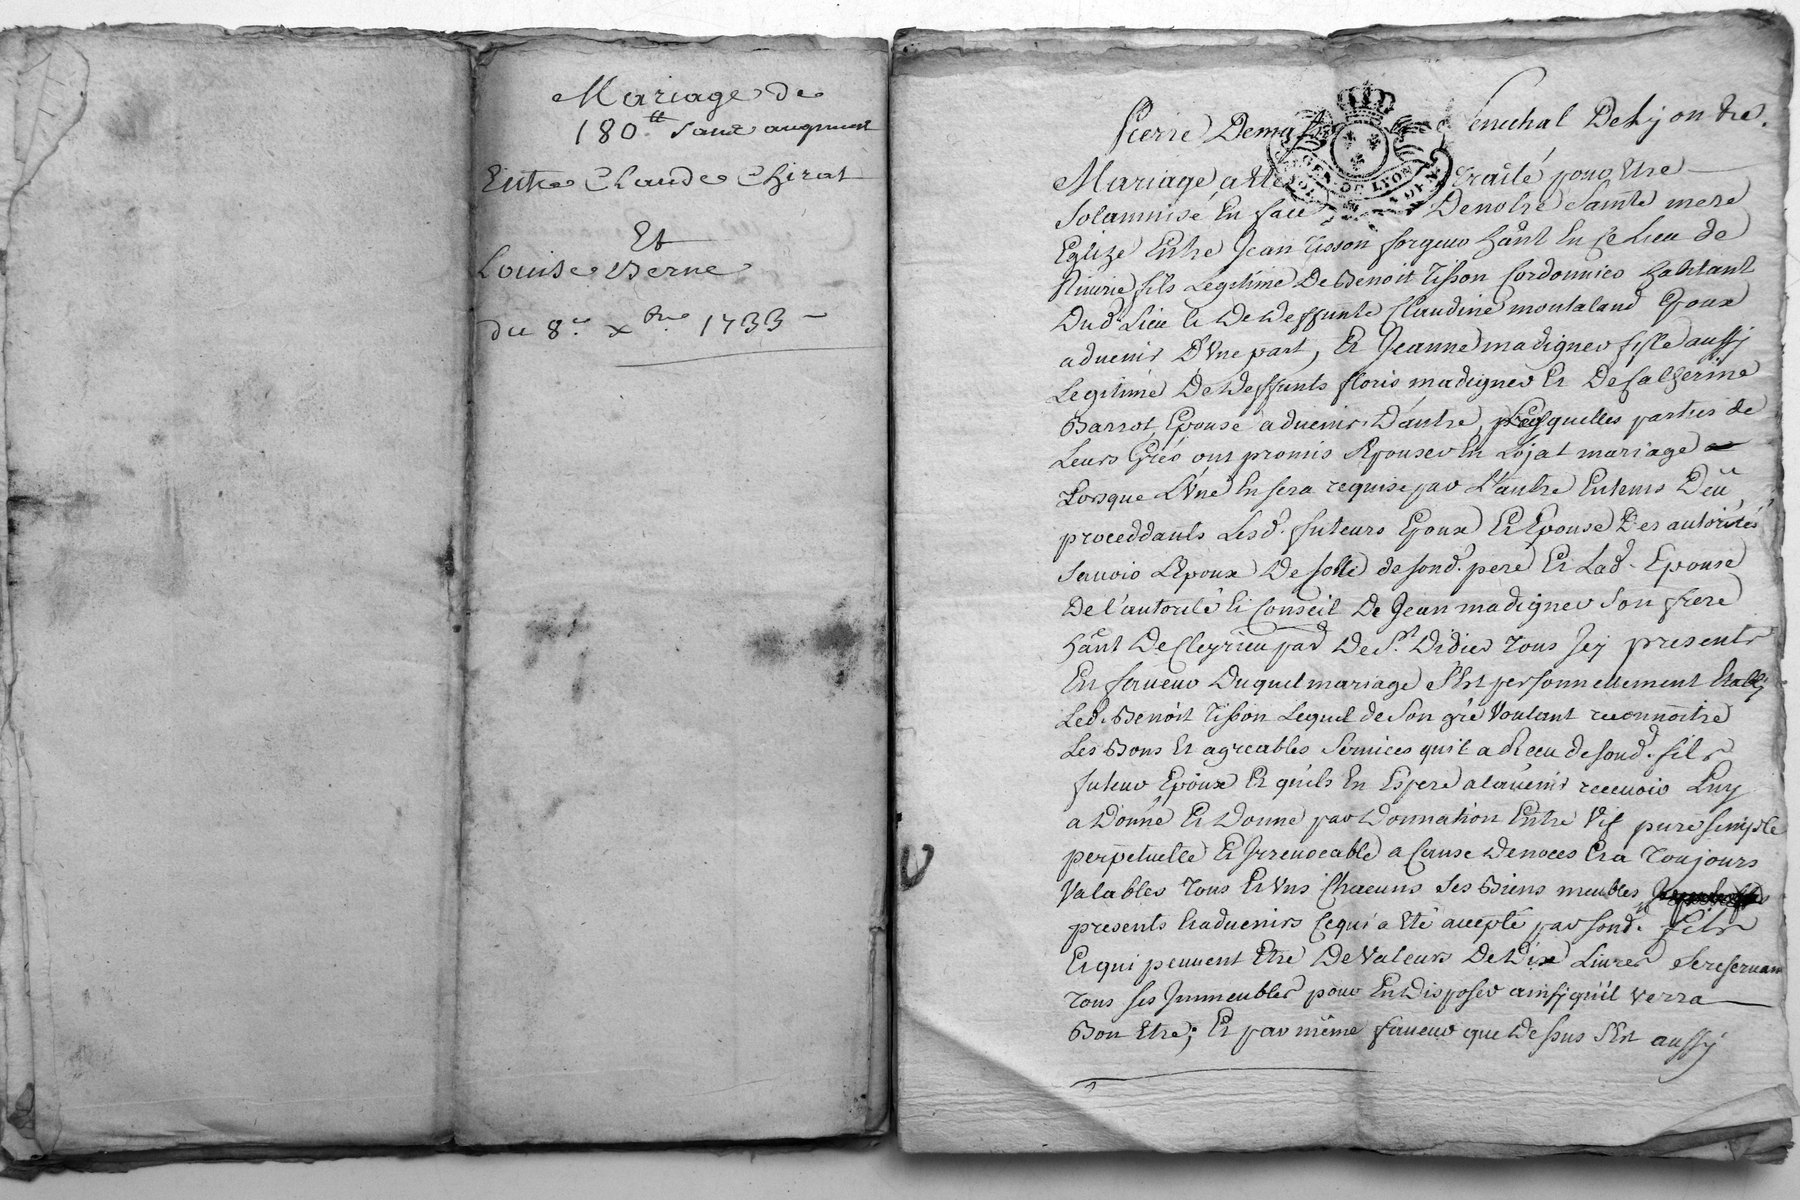 Mariage de
180 ᵗᵗ sans augment
Entre Claude Chirat
Et
Louise Berne
du 8.e xbre 1733
Pierre Demas Senechal De Lyon &a.
Mariage a eté traité pour Etre
Solamnisé En face De notre Sainte mere
Eglize Entre Jean Tisson forgeur hant En ce Lieu de
fils Legitime De Benoit Tisson Cordonnier habitant
Dud. Lieu & De Deffunte Claudine montaland Epoux
aduenir D'Vne part, Et Jeanne madigner fille aussy
Legitime De Deffunts floris madigner Et De Catherine
Barrot, Epouse aduenir D'autre, Lesquelles parties de
Leurs Grés ont promis Epouser En Loyal mariage
Lorsque L'Vne En sera requise par L'autre Entems Deû,
proceddants Lesd. futeurs Epoux Et Epouse Des autorités
Sauoir L'Epoux De Celle de sond. pere Et Lad. Epouse
De l'autorité Et Conseil De Jean madigner Son frere
hant De Cleyrieu par De St. Didier Tous Jcy presents
En faueur Duquel mariage S'Est personnellement Etably
Led. Benoit Tisson Lequel de Son gré Voulant reconnoitre
Les Bons Et agreables Seruices qu'il a Receu de sond. fils
futeur Epoux Et qu'ils En Espere alauenir receuoir Luy
a Donné Et Donne par Donnation Entre Vif pure simple
perpetuelle Et Jrreuocable a Cause De noces Et a Toujours
Valables Tous Et Vns Chacuns Ses Biens meubles
presents Et aduenirs Ce qui a Eté accepté par sond. fils
Et qui peuuent Etre De Valeurs De Dix Liures Se reseruant
Tous ses Jmmeubles pour En Disposer ainsy qu'il Verra
Bon Etre; Et par même faueur que Dessus S'Est aussy